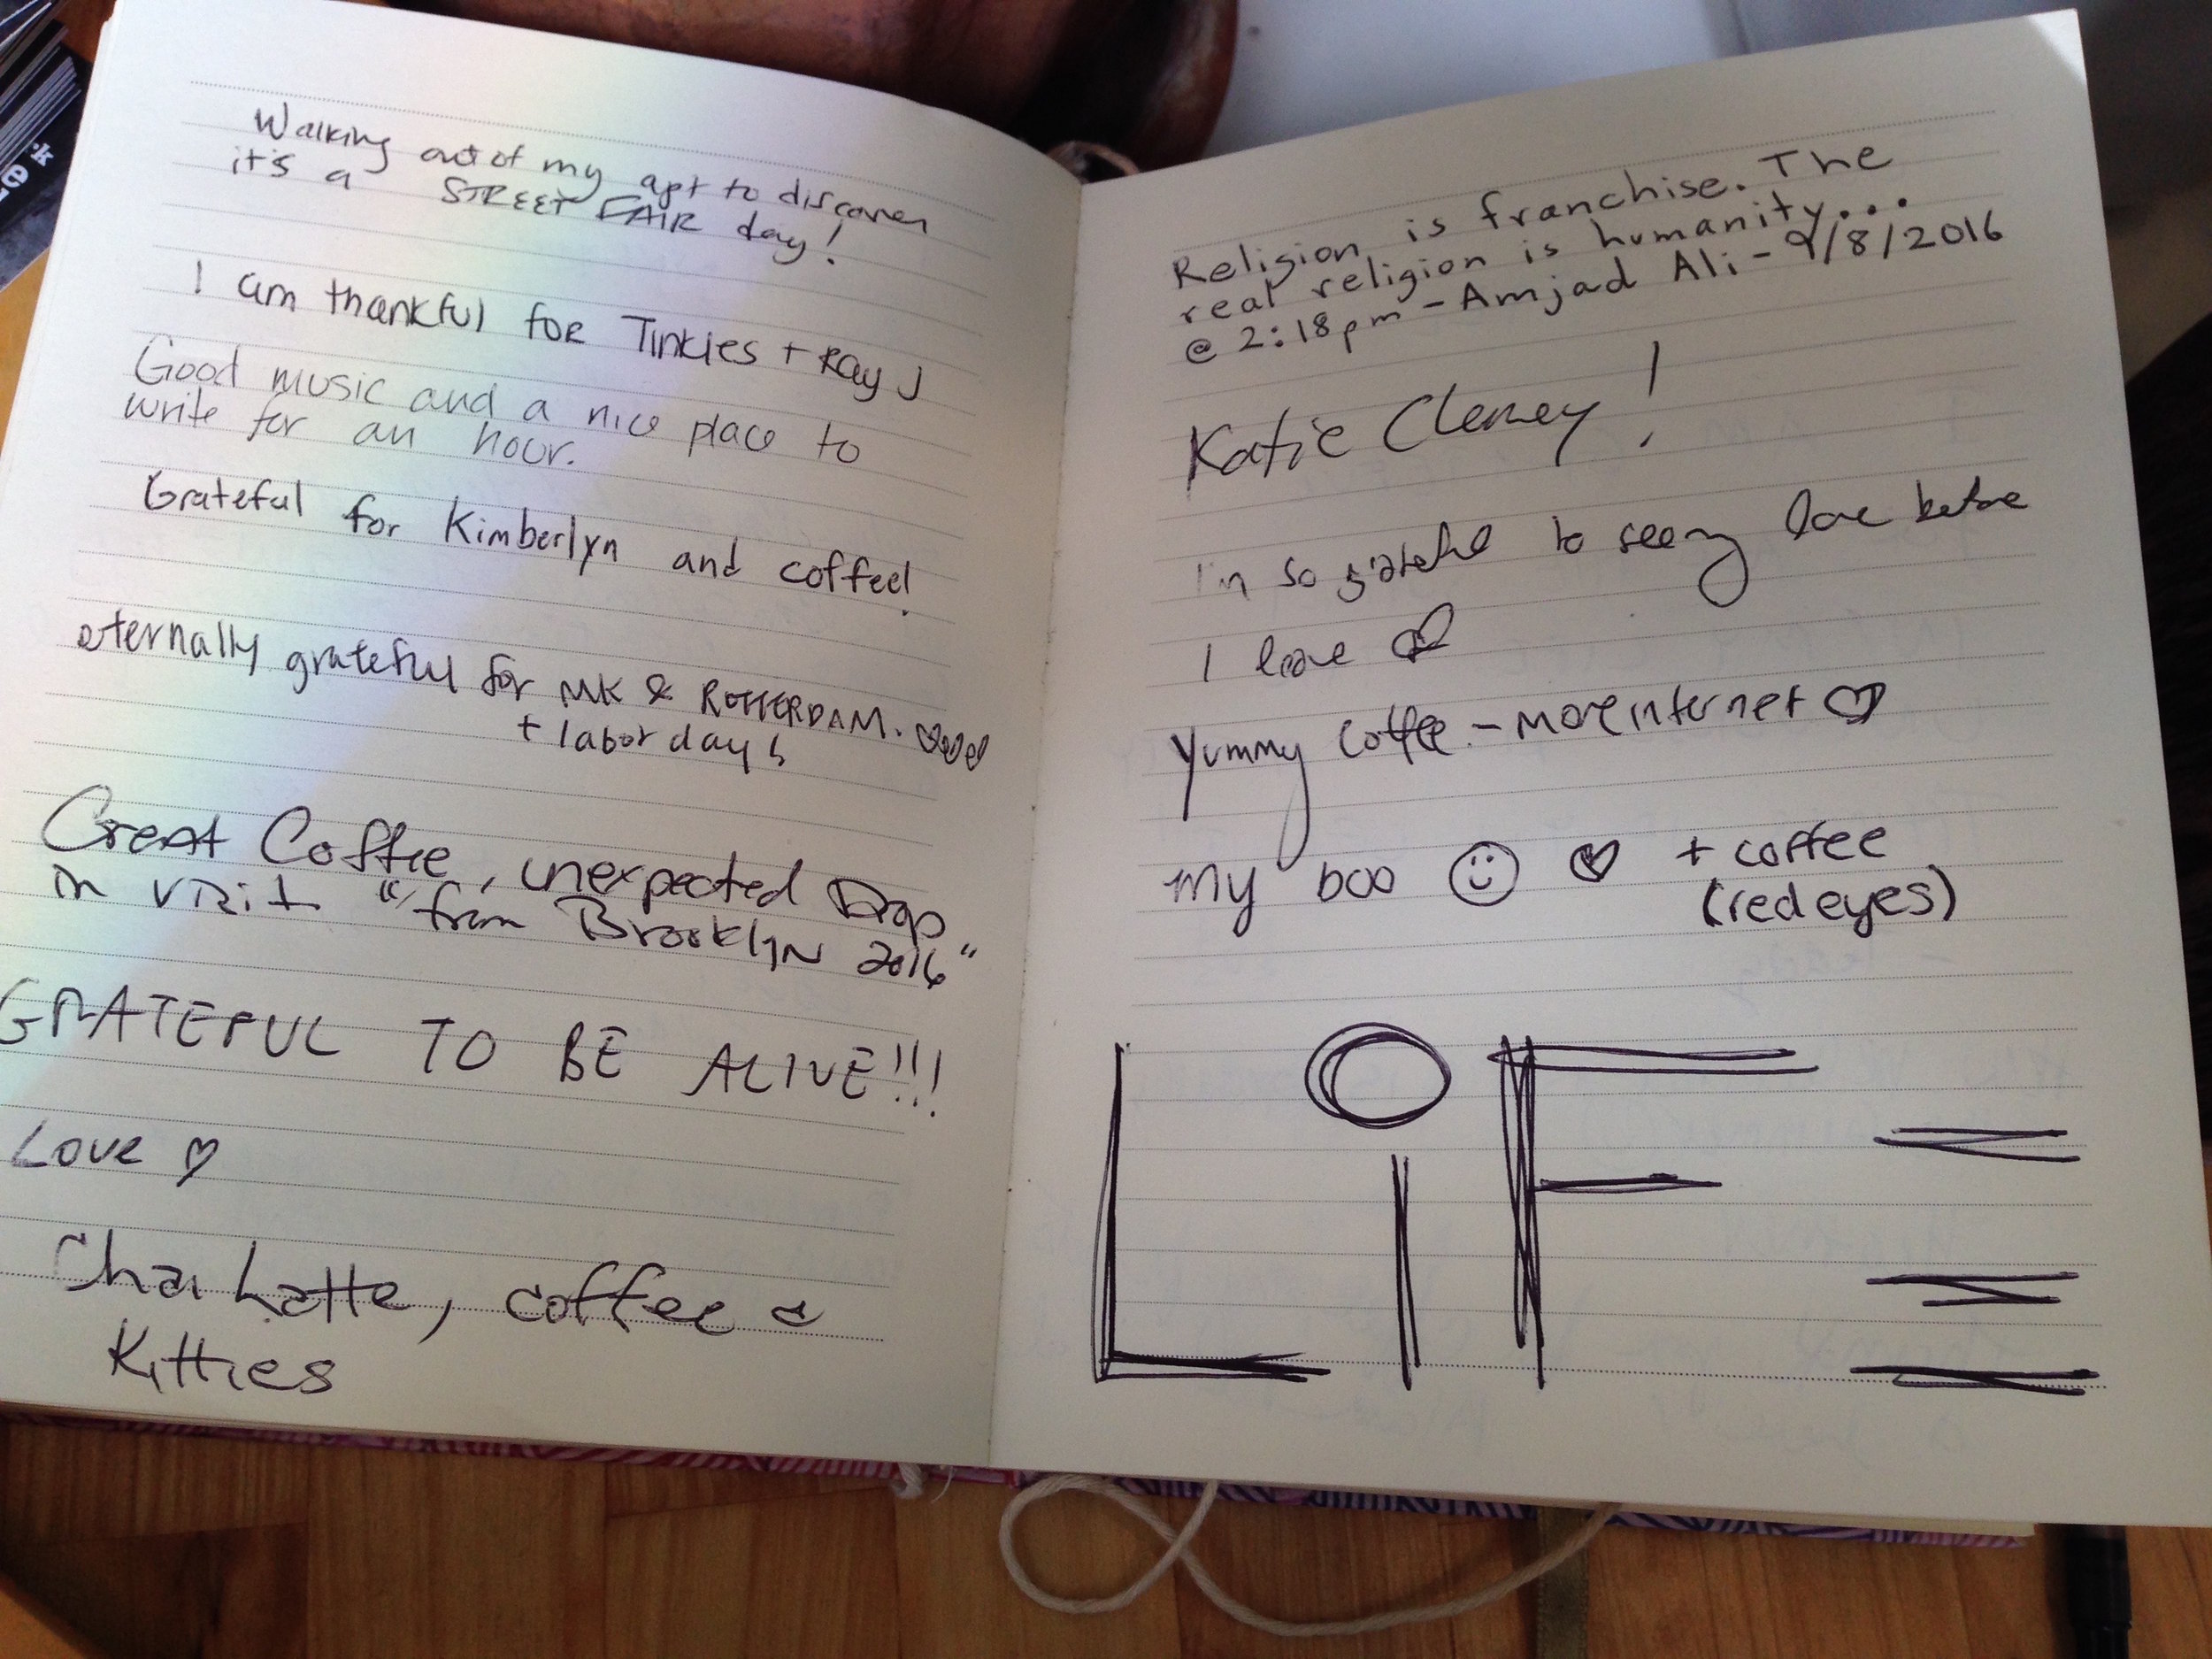 Walking out of my apt to discover
it's a STREET FAIR day!
I am thankful for Tinkies + Ray J
Good music and a nice place to
write for an hour.
Grateful for Kimberlyn and coffee!
eternally grateful for MK & ROTTERDAM. ♡♡♡♡
+ labor day!
Great Coffee, unexpected Drop
in visit "from Brooklyn 2016"
GRATEFUL TO BE ALIVE!!!
LOVE ♡
Chai Latte, coffee &
Kitties
Religion is franchise. The
real religion is humanity...
@ 2:18pm - Amjad Ali - 9/8/2016
Katie !
I'm so grateful to see my love before
I leave ♡
Yummy coffee - more internet ♡
my boo ☺ ♡ + coffee
(red eyes)
LiFE